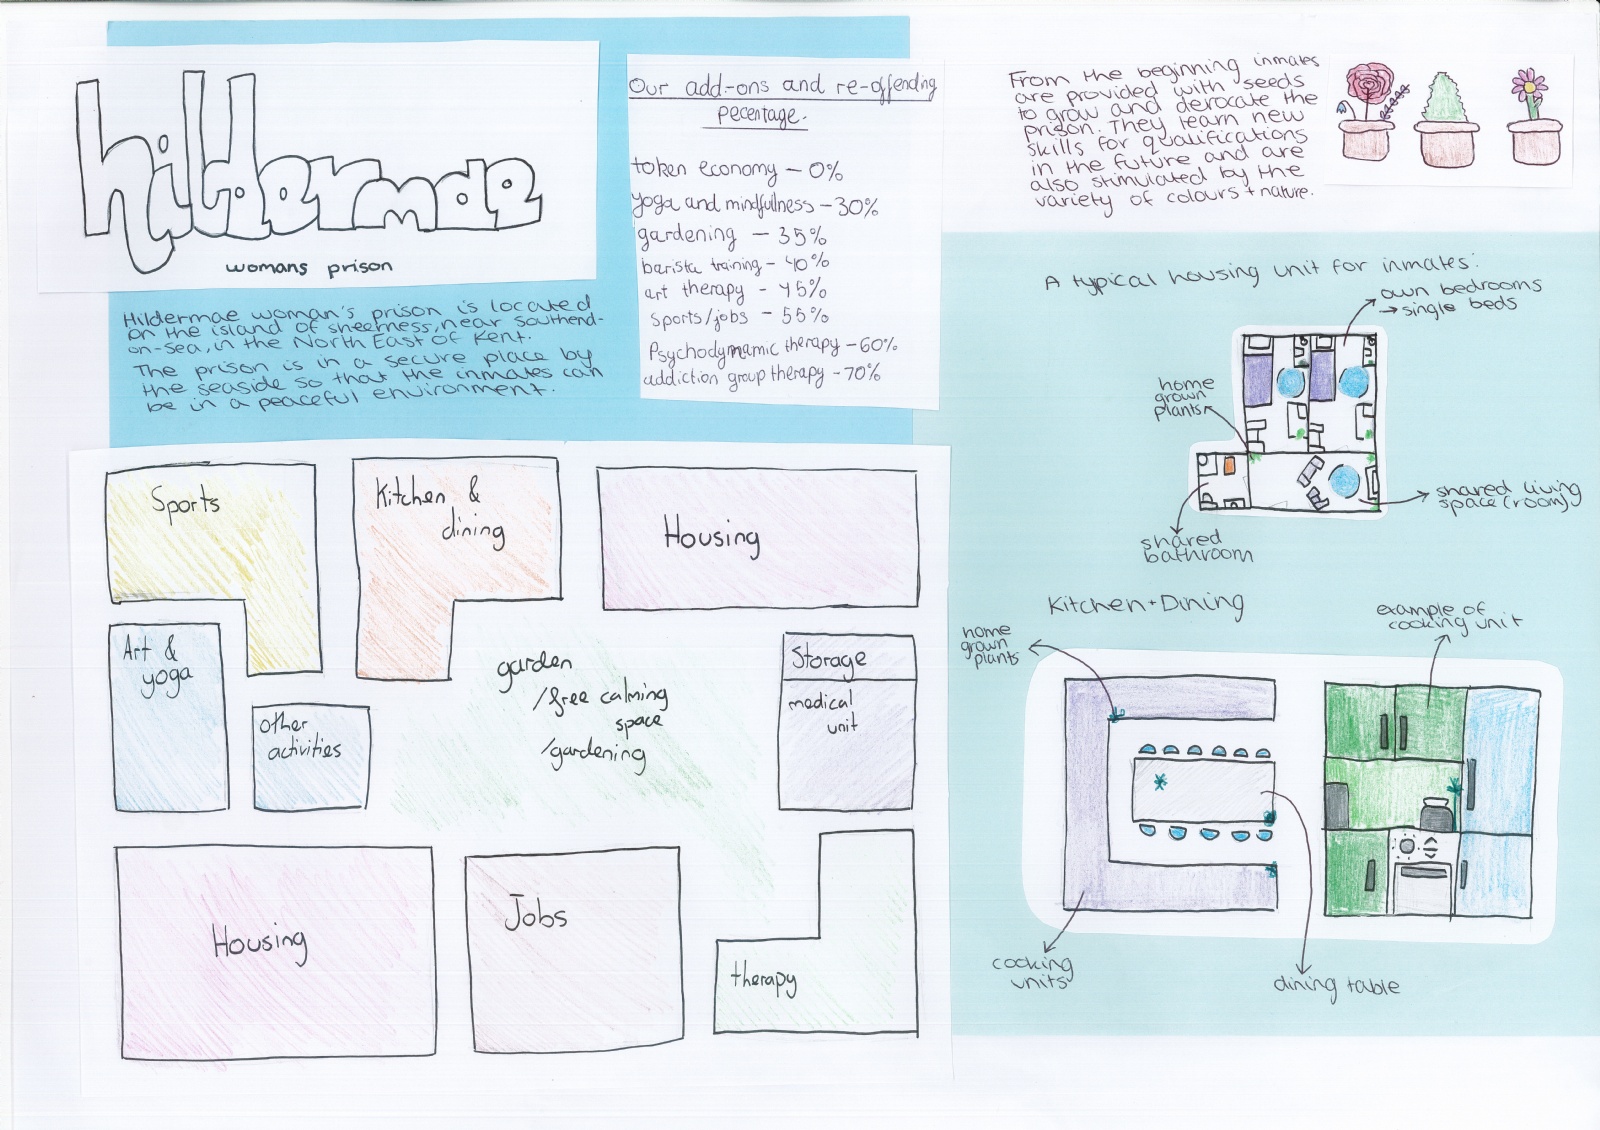 hildermae
womans prison
Hildermae woman's prison is located
on the island of sheerness, near Southend-
on-sea, in the North East of Kent.
The prison is in a secure place by
the seaside so that the inmates can
be in a peaceful environment.
Our add-ons and re-offending
pecentage.
token economy - 0%
yoga and mindfullness - 30%
gardening - 35%
barista training - 40%
art therapy - 45%
sports/jobs - 55%
Psychodynamic therapy - 60%
addiction group therapy - 70%
From the beginning inmates
are provided with seeds
to grow and derocate the
prison. They learn new
skills for qualifications
in the future and are
also stimulated by the
variety of colours + nature.
A typical housing unit for inmates:
own bedrooms
→ single beds
home
grown
plants
shared living
space (room)
shared
bathroom
Kitchen + Dining
home
grown
plants
example of
cooking unit
cooking
units
dining table
Sports
Kitchen &
dining
Housing
Art &
yoga
other
activities
garden
/free calming
space
/gardening
Storage
medical
unit
Housing
Jobs
therapy